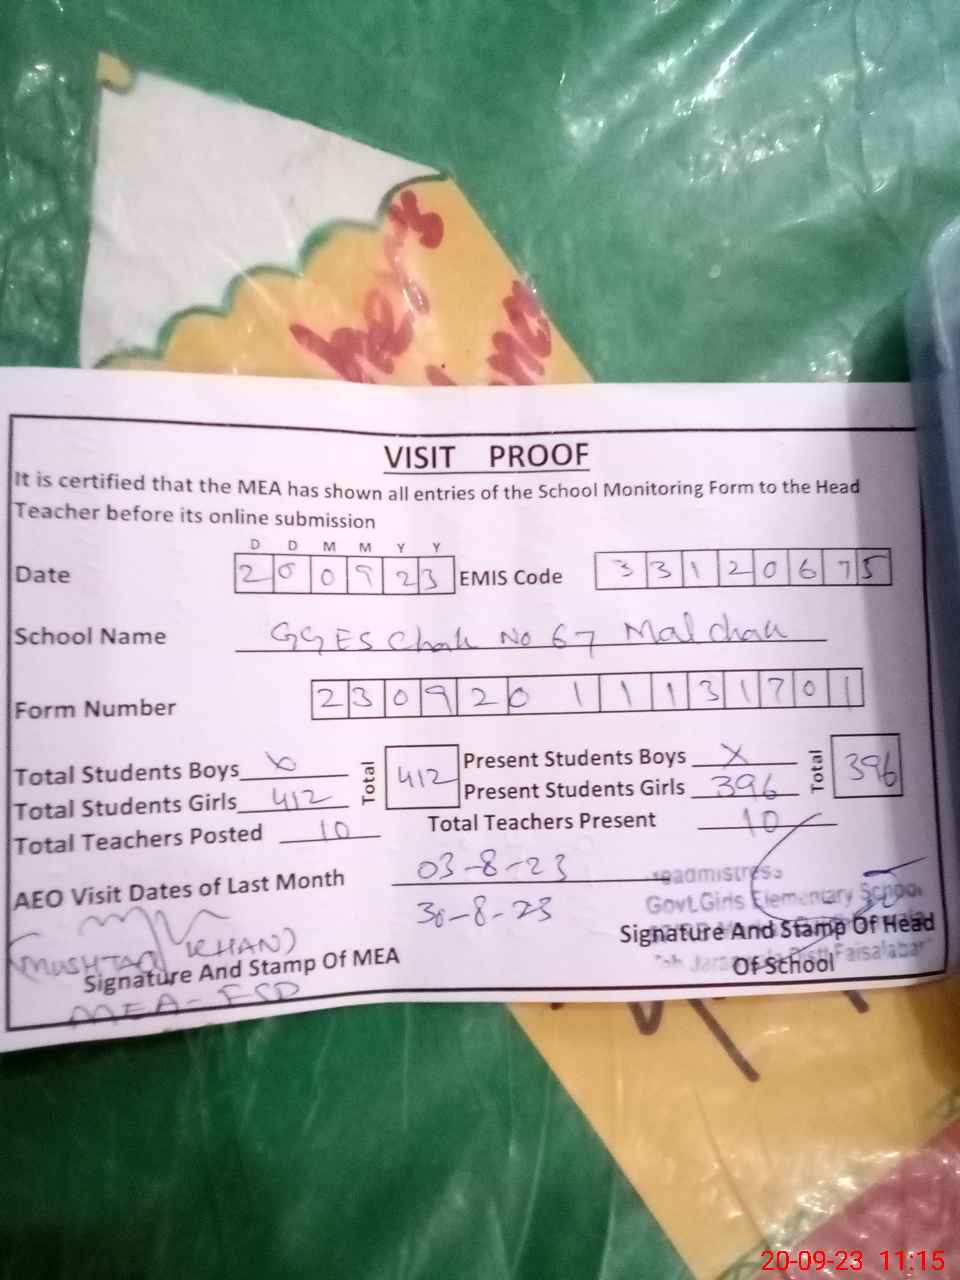 VISIT PROOF
It is certified that the MEA has shown all entries of the School Monitoring Form to the Head
Teacher before its online submission
D D M M Y Y
Date 2 0 0 9 2 3 EMIS Code 3 3 1 2 0 6 7 5
School Name GGES Chak No 67 Mal chak
Form Number 2 3 0 9 2 0 1 1 1 3 1 7 0 1
Total Students Boys Total 412 Present Students Boys X Total 396
Total Students Girls 412 Present Students Girls 396
Total Teachers Posted 10 Total Teachers Present 10
AEO Visit Dates of Last Month 03-8-23
30-8-23
Headmistress
Govt.Girls Elementary School
(MUSHTAQ KHAN)
Signature And Stamp Of MEA
MEA-FSD
Signature And Stamp Of Head
Of School
Faisalabad
20-09-23 11:15